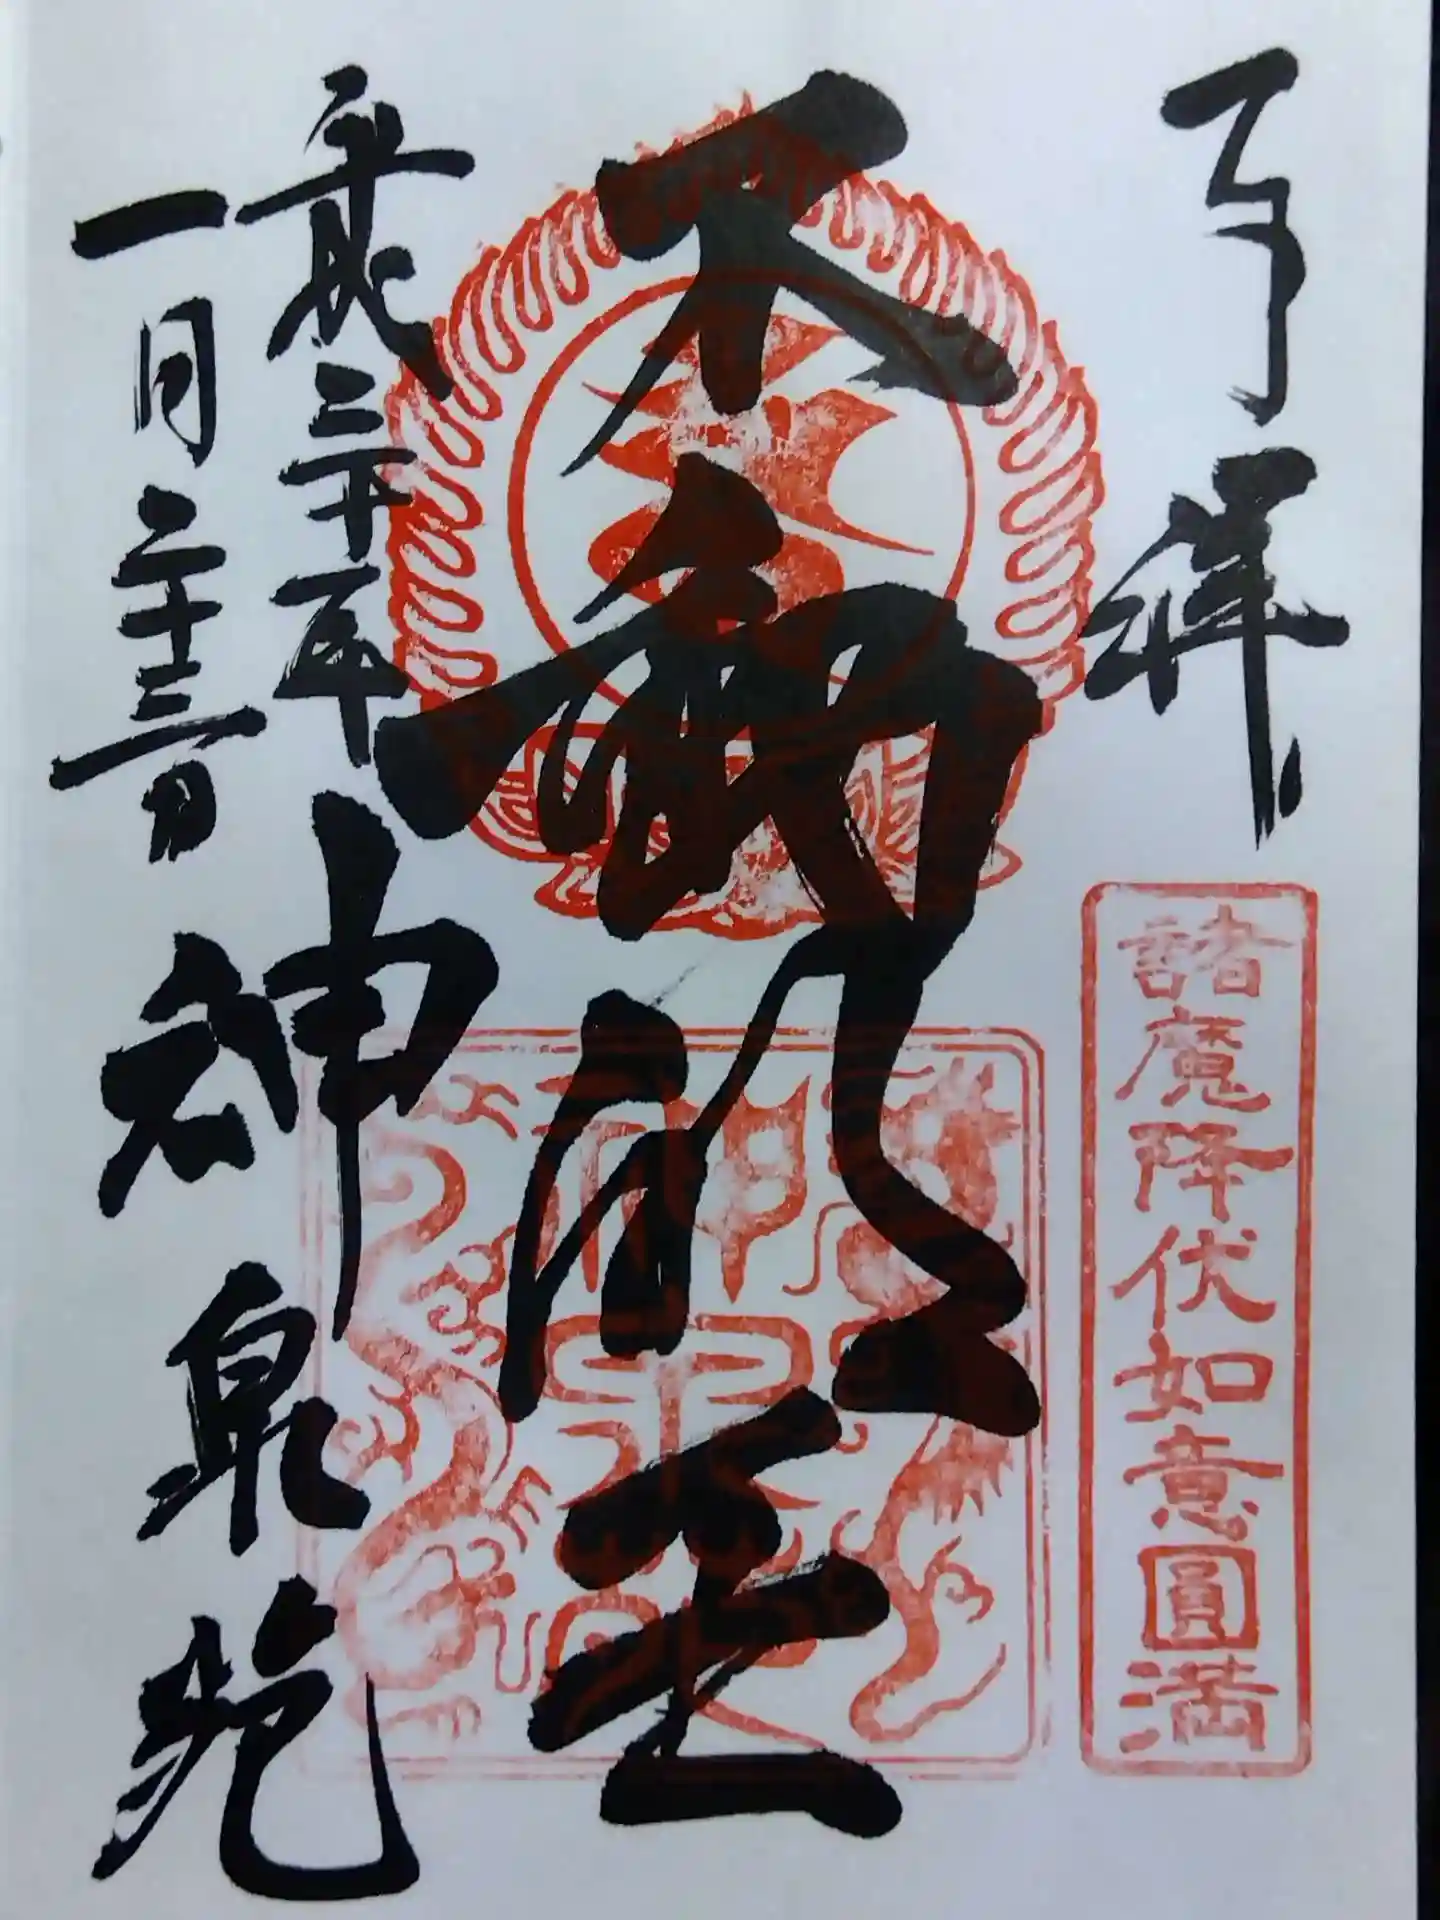 諸魔降伏如意圓満
不動明王
平成三十年
一月二十三日
神泉苑
神泉苑